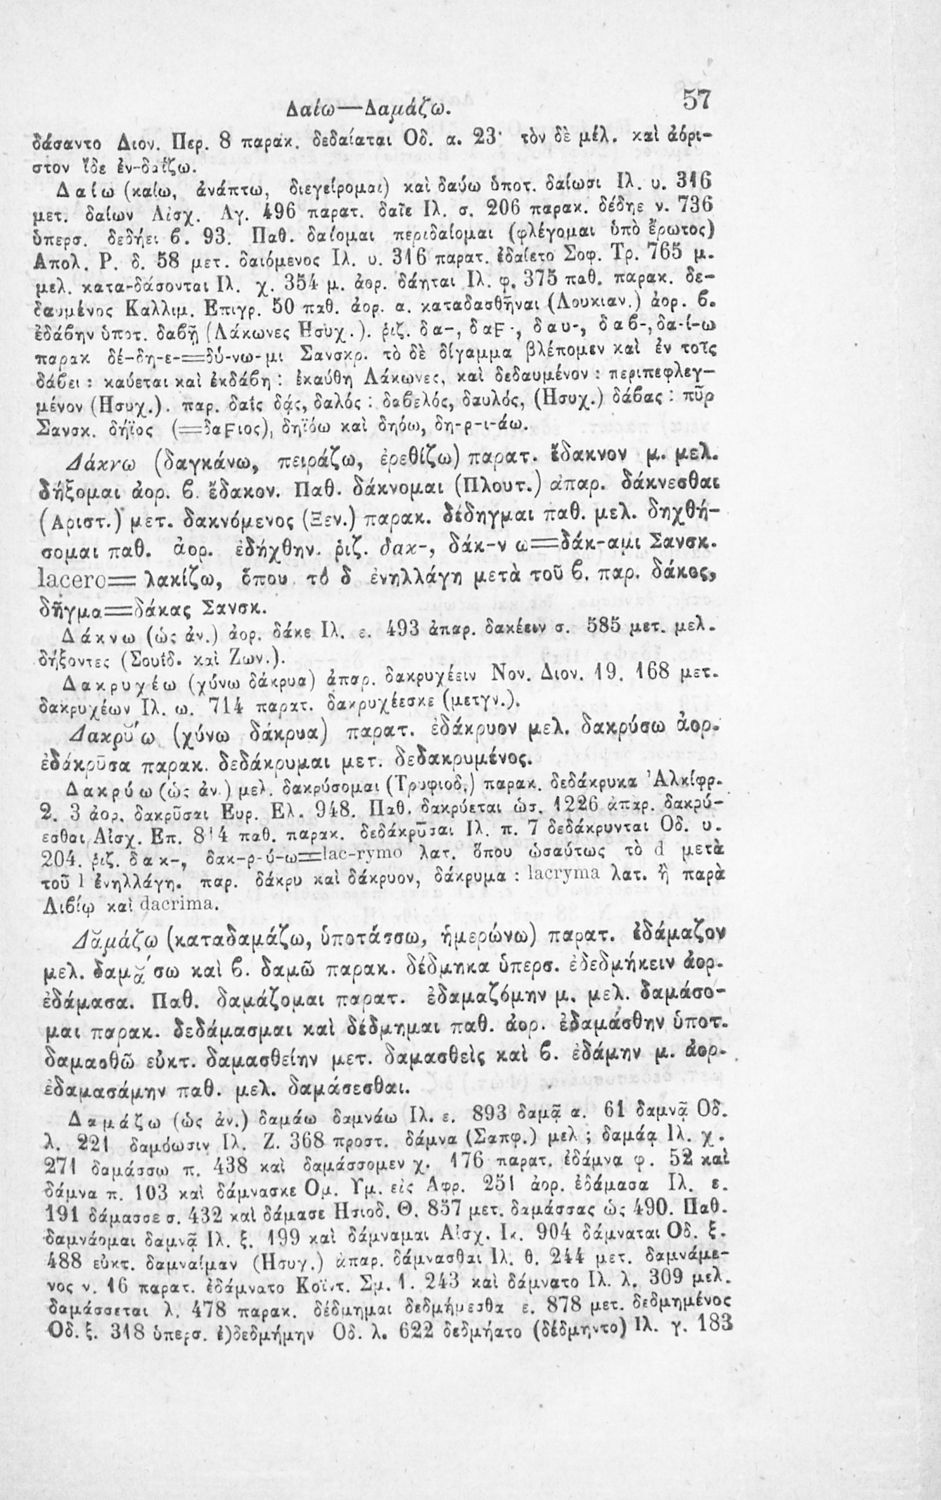 Δαίω—Δαμάζω. 57
δάσαντο Διον. Περ. 8 παρακ. δεδαίαται Οδ. α. 23· τὸν δὲ μέλ. καὶ ἀόρι-
στον ἴδε ἐν-δαΐζω.
Δαίω (καίω, ἀνάπτω, διεγείρομαι) καὶ δαύω ὑποτ. δαίωσι Ιλ. υ. 316
μετ. δαίων Αἰσχ. Αγ. 496 παρατ. δαῖε Ιλ. σ. 206 παρακ. δέδηε ν. 736
ὑπερσ. δεδήει β. 93. Παθ. δαίομαι περιδαίομαι (φλέγομαι ὑπὸ ἔρωτος)
Απολ. Ρ. δ. 58 μετ. δαιόμενος Ιλ. υ. 316 παρατ. ἐδαίετο Σοφ. Τρ. 765 μ.
μελ. κατα-δάσονται Ιλ. χ. 354 μ. ἀορ. δάηται Ιλ. φ. 375 παθ. παρακ. δε-
δαυμένος Καλλιμ. Επιγρ. 50 παθ. ἀορ. α. καταδασθῆναι (Λουκιαν.) ἀορ. β.
ἐδάβην ὑποτ. δαβῇ (Λάκωνες Ησυχ.). ῥιζ. δα-, δαϝ-, δαυ-, δαβ-, δα-ί-ω
παρακ δέ-δη-ε-=δύ-νω-μι Σανσκρ. τὸ δὲ δίγαμμα βλέπομεν καὶ ἐν τοῖς
δάβει : καύεται καὶ ἐκδάβη : ἐκαύθη Λάκωνες, καὶ δεδαυμένον : περιπεφλεγ-
μένον (Ησυχ.). παρ. δαΐς δᾴς, δαλός : δαβελός, δαυλός, (Ησυχ.) δάβας : πῦρ
Σανσκ. δήϊος (=δαϝιος), δηϊόω καὶ δηόω, δη-ρ-ι-άω.
Δάκνω (δαγκάνω, πειράζω, ἐρεθίζω) παρατ. ἔδακνον μ. μελ.
δήξομαι ἀορ. β. ἔδακον. Παθ. δάκνομαι (Πλουτ.) ἀπαρ. δάκνεσθαι
(Αριστ.) μετ. δακνόμενος (Ξεν.) παρακ. δέδηγμαι παθ. μελ. δηχθή-
σομαι παθ. ἀορ. ἐδήχθην. ῥιζ. δακ-, δάκ-ν ω=δάκ-αμι Σανσκ.
lacero= λακίζω, ὅπου τό δ ἐνηλλάγη μετὰ τοῦ β. παρ. δάκος,
δῆγμα=δάκας Σανσκ.
Δάκνω (ὡς ἀν.) ἀορ. δάκε Ιλ. ε. 493 ἀπαρ. δακέειν σ. 585 μετ. μελ.
δήξοντες (Σουΐδ. καὶ Ζων.).
Δακρυχέω (χύνω δάκρυα) ἀπαρ. δακρυχέειν Νον. Διον. 19. 168 μετ.
δακρυχέων Ιλ. ω. 714 παρατ. δακρυχέεσκε (μετγν.).
Δακρῡ́ω (χύνω δάκρυα) παρατ. ἐδάκρυον μελ. δακρύσω ἀορ.
ἐδάκρῦσα παρακ. δεδάκρυμαι μετ. δεδακρυμένος.
Δακρύω (ὡς ἀν.) μελ. δακρύσομαι (Τρυφιοδ.) παρακ. δεδάκρυκα Ἀλκίφρ.
2. 3 ἀορ. δακρῦσαι Ευρ. Ελ. 948. Παθ. δακρύεται ὡσ. 1226 ἀπαρ. δακρύ-
εσθαι Αἰσχ. Επ. 814 παθ. παρακ. δεδάκρῦσαι Ιλ. π. 7 δεδάκρυνται Οδ. υ.
204. ῥιζ. δακ-, δακ-ρ-ύ-ω=lac-rymo λατ. ὅπου ὡσαύτως τὸ d μετὰ
τοῦ l ἐνηλλάγη. παρ. δάκρυ καὶ δάκρυον, δάκρυμα : lacryma λατ. ἢ παρὰ
Λιβίῳ καὶ dacrima.
Δᾰμάζω (καταδαμάζω, ὑποτάσσω, ἡμερώνω) παρατ. ἐδάμαζον
μελ. δαμᾰ́σω καὶ β. δαμῶ παρακ. δέδμηκα ὑπερσ. ἐδεδμήκειν ἀορ.
ἐδάμασα. Παθ. δαμάζομαι παρατ. ἐδαμαζόμην μ. μελ. δαμάσο-
μαι παρακ. δεδάμασμαι καὶ δέδμημαι παθ. ἀορ. ἐδαμάσθην ὑποτ.
δαμασθῶ εὐκτ. δαμασθείην μετ. δαμασθεὶς καὶ β. ἐδάμην μ. ἀορ.
ἐδαμασάμην παθ. μελ. δαμάσεσθαι.
Δαμάζω (ὡς ἀν.) δαμάω δαμνάω Ιλ. ε. 893 δαμᾷ α. 61 δαμνᾷ Οδ.
λ. 221 δαμόωσιν Ιλ. Ζ. 368 προστ. δάμνα (Σαπφ.) μελ ; δαμάᾳ Ιλ. χ.
271 δαμάσσω π. 438 καὶ δαμάσσομεν χ. 176 παρατ. ἐδάμνα φ. 52 καὶ
δάμνα π. 103 καὶ δάμνασκε Ομ. Υμ. εἰς Αφρ. 251 ἀορ. ἐδάμασα Ιλ. ε.
191 δάμασσε σ. 432 καὶ δάμασε Ησιοδ. Θ. 857 μετ. δαμάσσας ὡς 490. Παθ.
δαμνάομαι δαμνᾷ Ιλ. ξ. 199 καὶ δάμναμαι Αἰσχ. Ικ. 904 δάμναται Οδ. ξ.
488 εὐκτ. δαμναίμαν (Ησυχ.) ἀπαρ. δάμνασθαι Ιλ. θ. 244 μετ. δαμνάμε-
νος ν. 16 παρατ. ἐδάμνατο Κοΐντ. Σμ. 1. 243 καὶ δάμνατο Ιλ. λ. 309 μελ.
δαμάσσεται λ. 478 παρακ. δέδμημαι δεδμήμεσθα ε. 878 μετ. δεδμημένος
Οδ. ξ. 318 ὑπερσ. ἐ)δεδμήμην Οδ. λ. 622 δεδμήατο (δέδμηντο) Ιλ. γ. 183